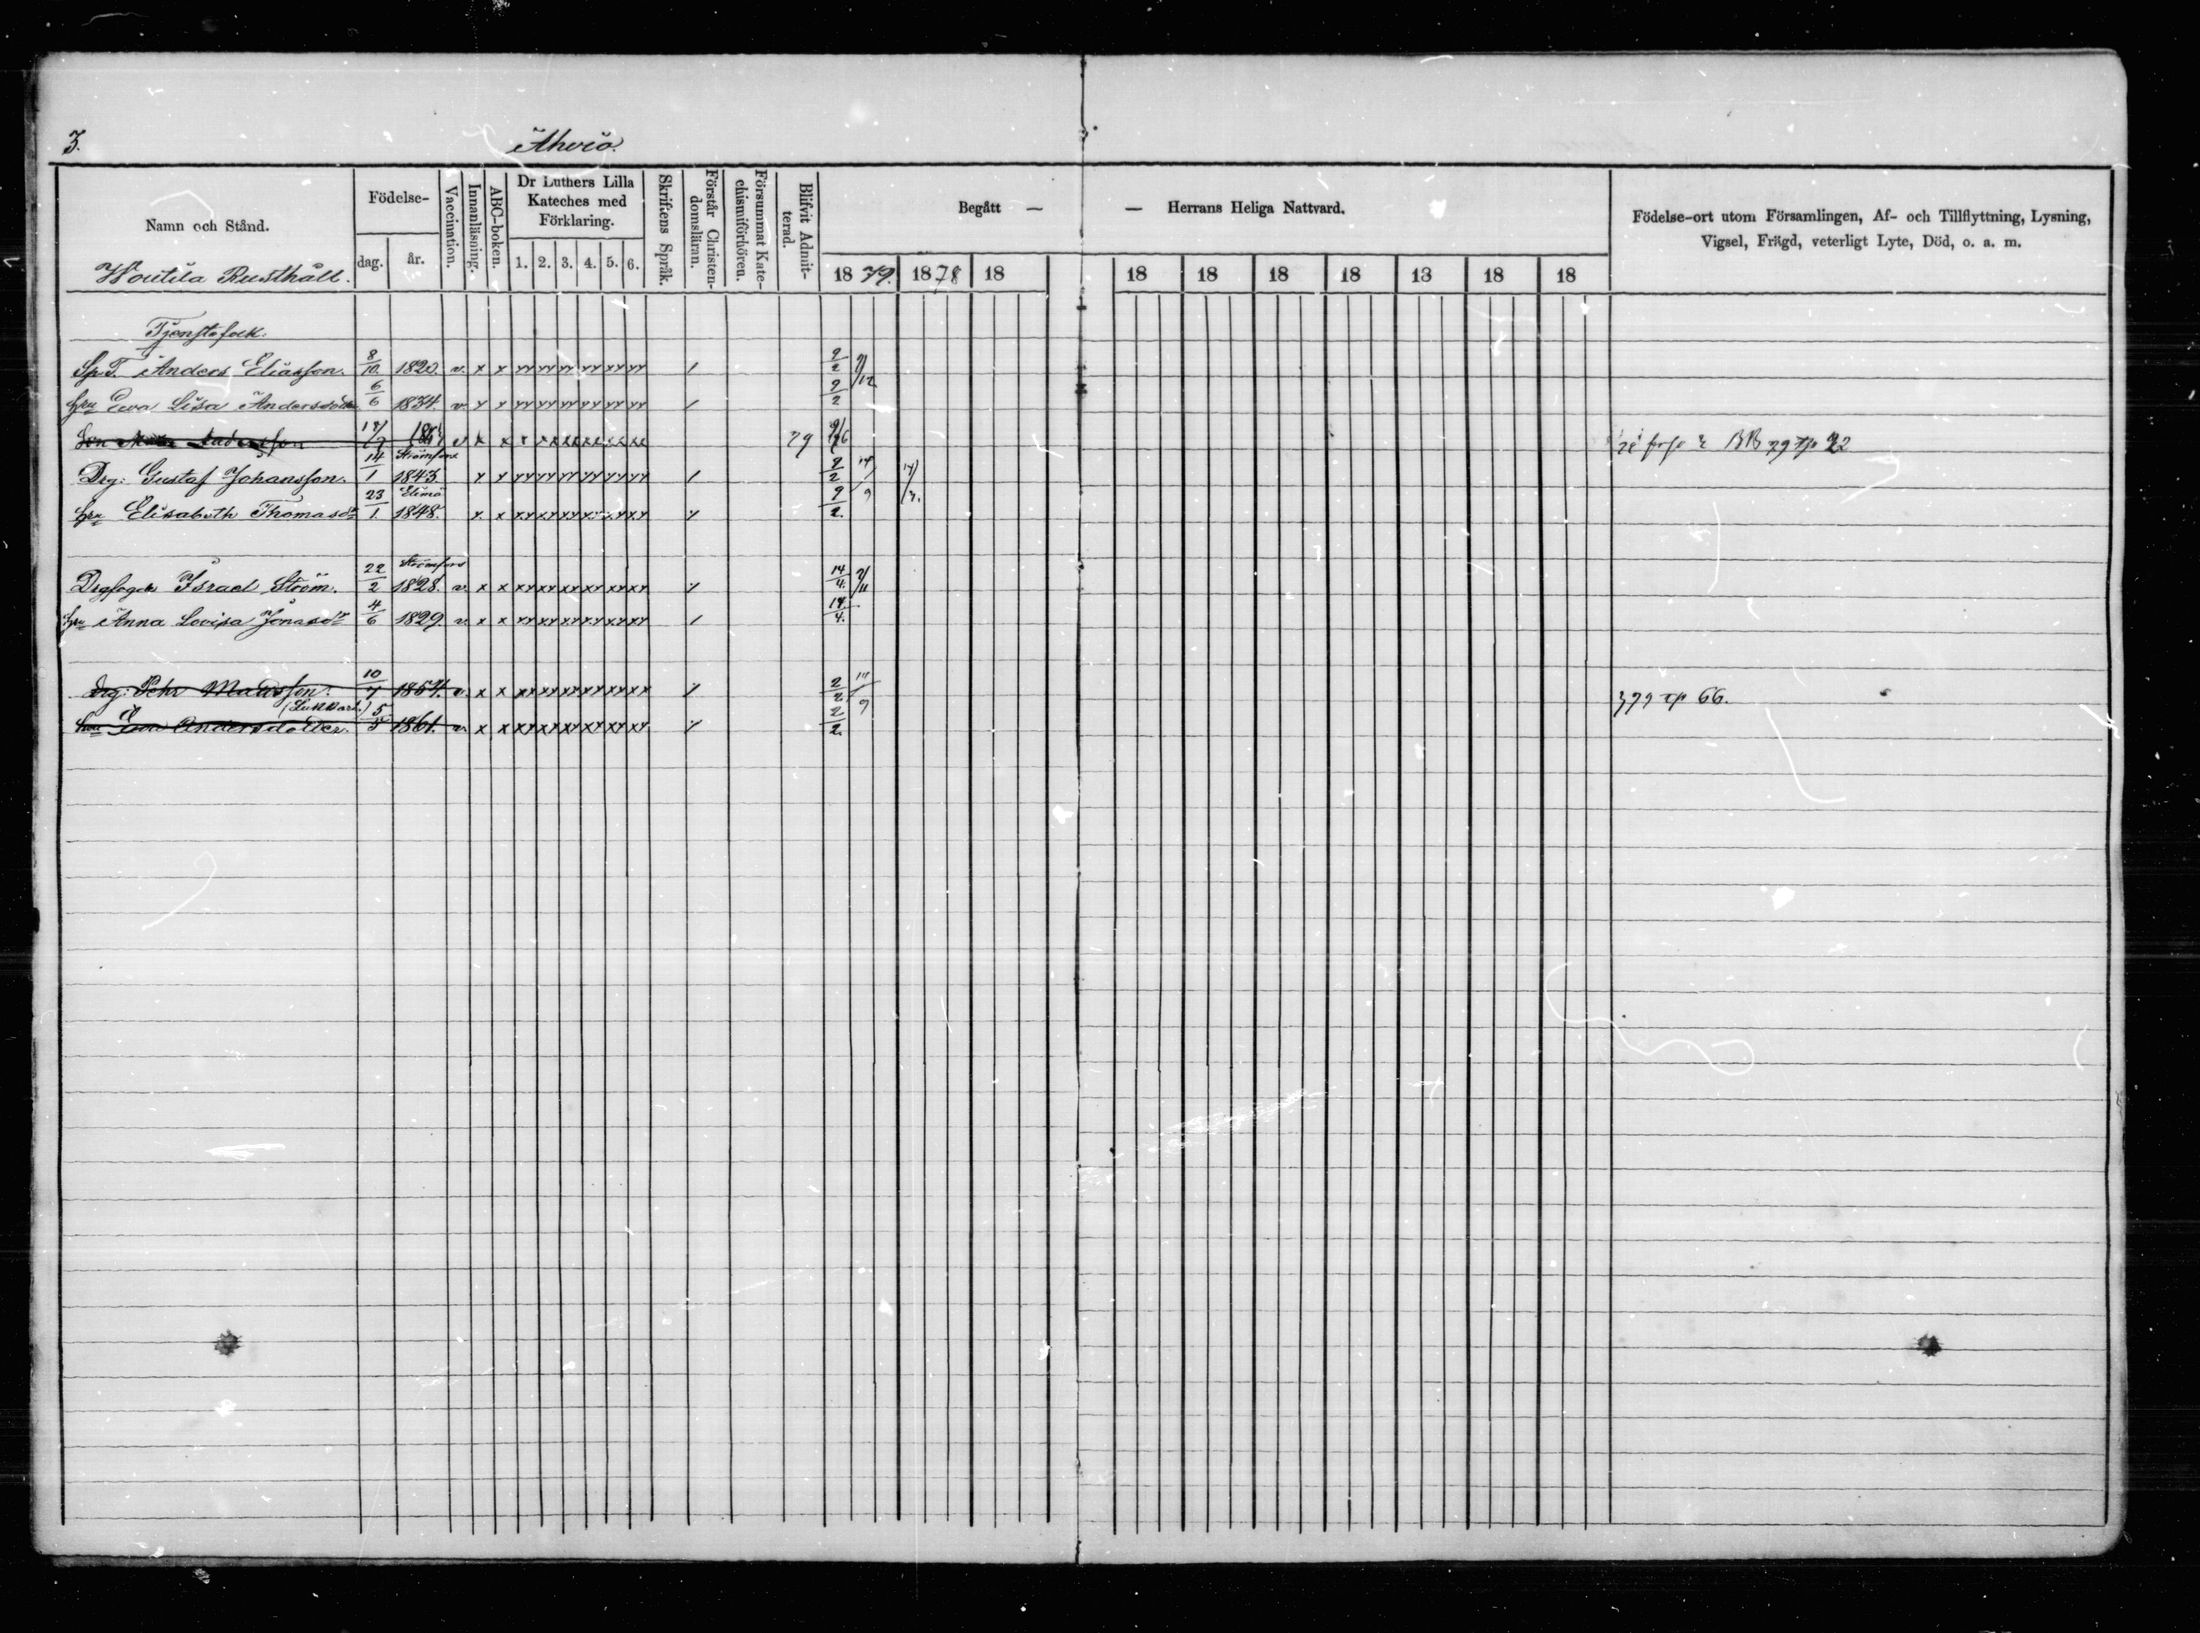 3. Ahvio.
Namn och Stånd. Födelse- dag. år. Vaccination. Innanläsning. ABC-boken. Dr Luthers Lilla Kateches med Förklaring. 1. 2. 3. 4. 5. 6. Skriftens Språk. Förstår Christendomsläran. Försummat Katechismiförhören. Blifvit Admitterad. Begått — — Herrans Heliga Nattvard. Födelse-ort utom Församlingen, Af- och Tillflyttning, Lysning, Vigsel, Frägd, veterligt Lyte, Död, o. a. m.
Woutila Rusthåll. 18 79. 1878 18 18 18 18 18 13 18 18
Tjenstefolk.
Sp.T. Anders Eliasson. 8/10 1820. v. x x xx xx xx xx xx xx / 2/2 2/12
hru Ewa Lisa Andersdotter 6/6 1834. v. x x xx xx xx xx xx xx / 2/2
Andersson 79
Strömfors
Drg: Gustaf Johansson. 14/1 1843. x x xx xx xx xx xx xx / 2/2 14/9
Elimä
hru Elisabeth Thomasdr 23/1. 1848. x x xx xx xx xx xx xx / 2/2.
Strömfors
Drgfogde Israel Ström. 22/2 1828. v. x x xx xx xx xx xx xx / 14/4. 2/11
hru Anna Lovisa Jonasdr 4/6 1829. v. x x xx xx xx xx xx xx / 14/4.
drg: Pehr Madsson. 10/7 1854. v. x x xx xx xx xx xx xx / 2/2 14/9 379 tp 66.
hru Ewa Andersdotter. 5/5 1861. v. x x xx xx xx xx xx xx / 2/2.